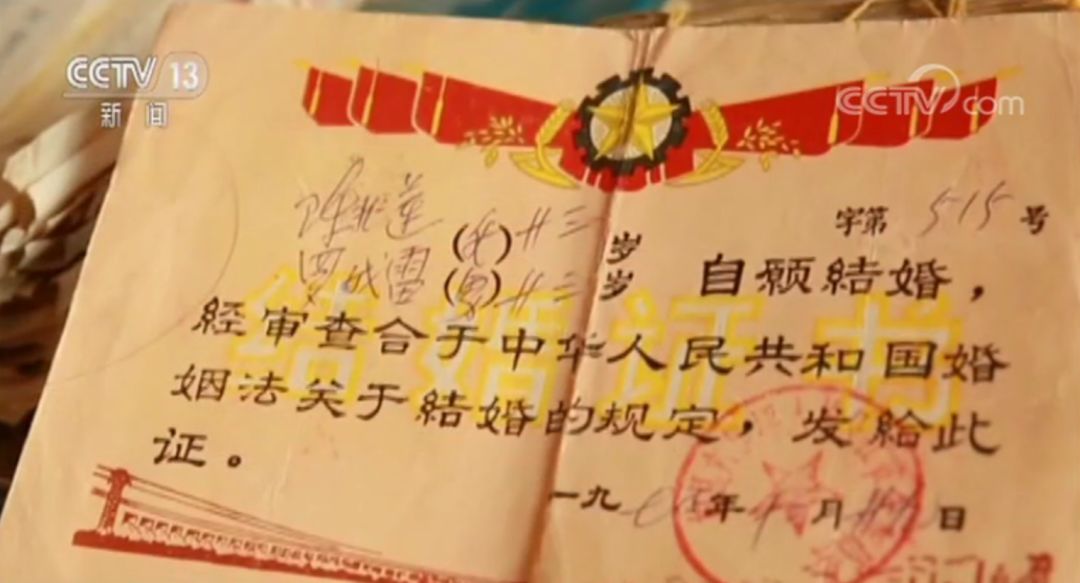 CCTV 13
新闻
CCTV.com
字第 515 号
(女)廿三岁
(男)廿三岁 自愿結婚，
結婚证书
经审查合于中华人民共和国婚
姻法关于結婚的规定，发給此
证。
一九 年 月 日